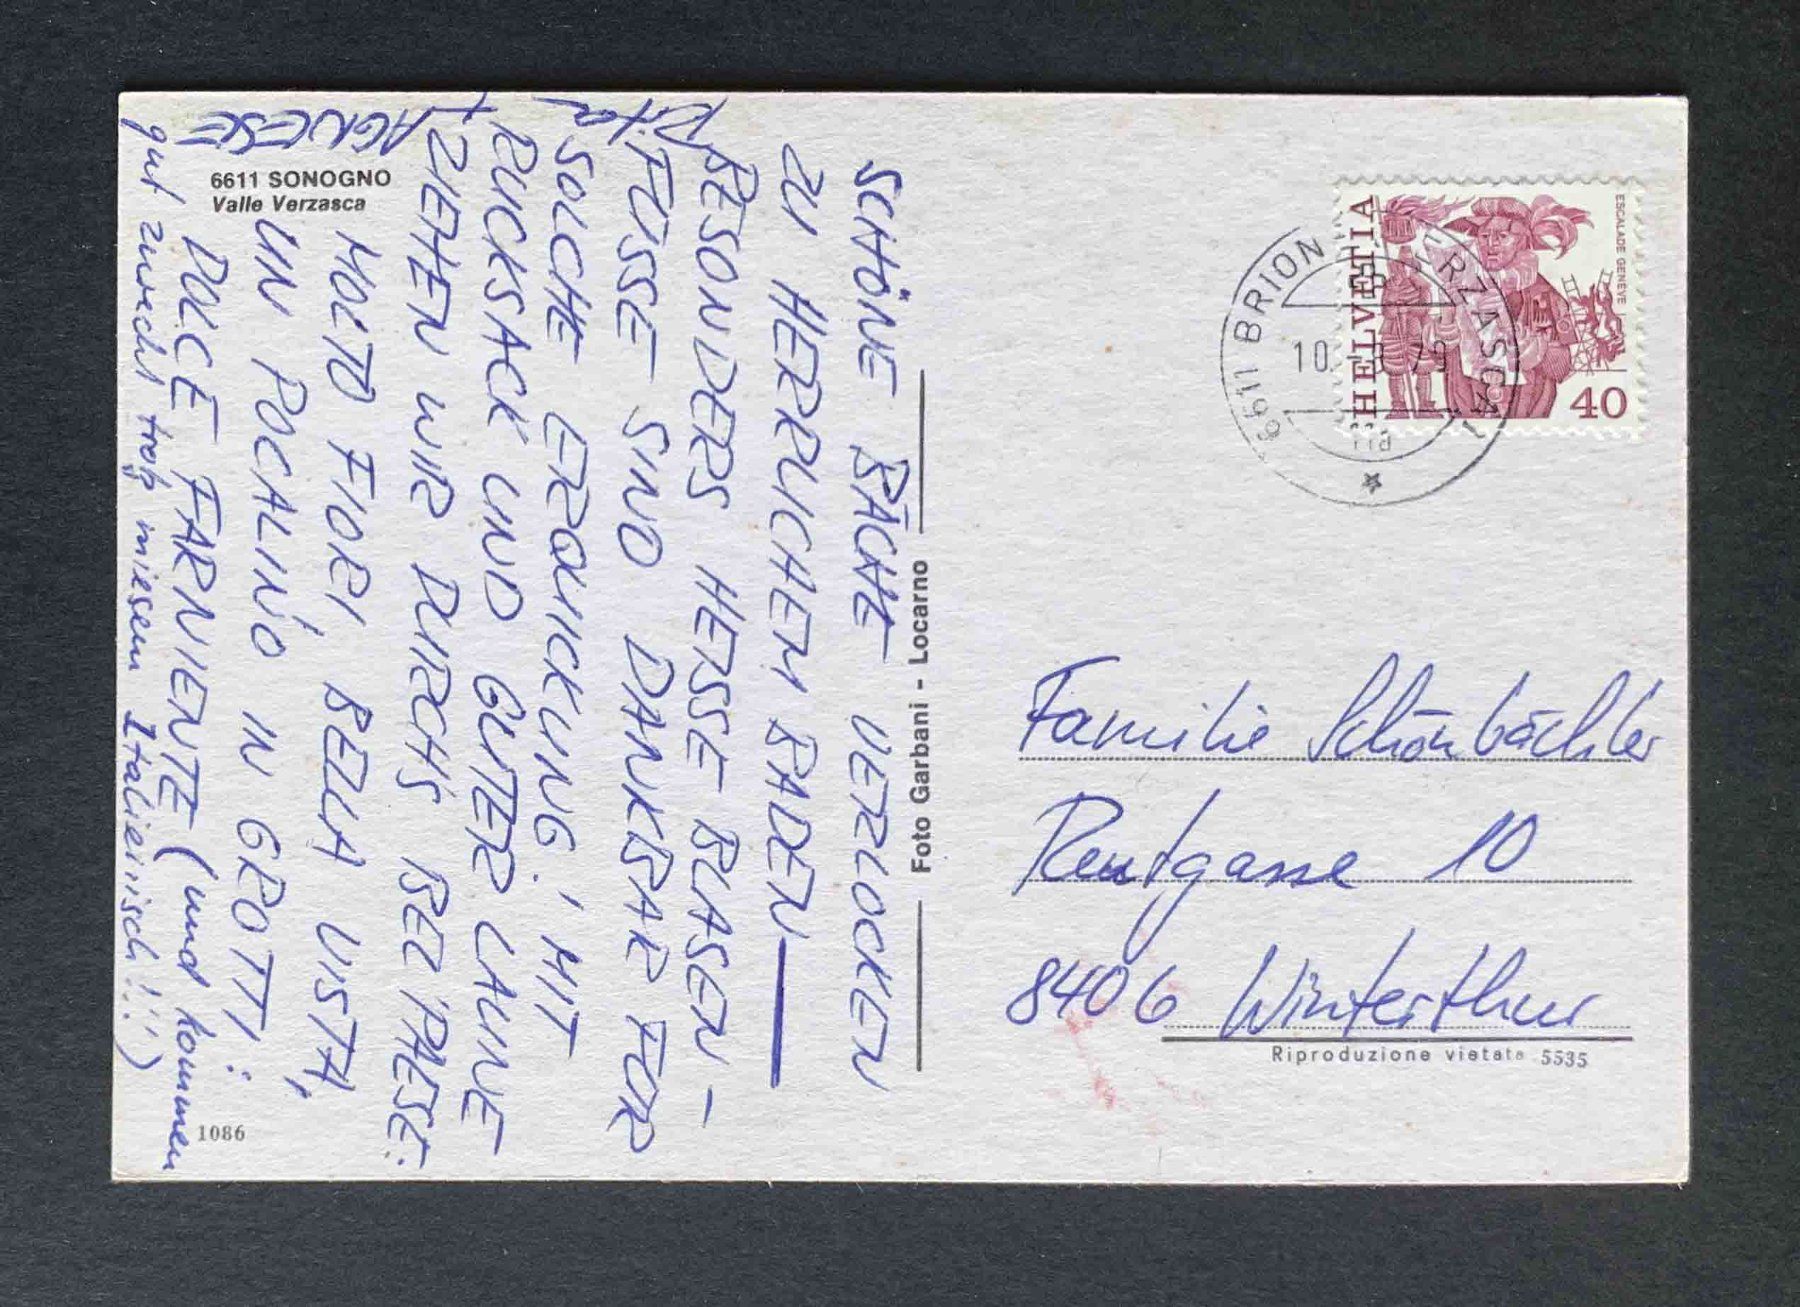 6611 SONOGNO
Valle Verzasca
SCHÖNE BÄCHE VERLOCKEN
ZU HERRLICHEM BADEN
BESONDERS HEISSE BLASEN-
FÜSSE SIND DANKBAR FÜR
SOLCHE ERQUICKUNG! MIT
RUCKSACK UND GUTER LAUNE
ZIEHEN WIR DURCH'S BEL PAESE:
MOLTO FIORI, BELLA VISTA,
UN POCALINO IN GROTTI:
DOLCE FARNIENTE (und kommen
gut zurecht trotz miesem Italienisch!!!)
AGNESE
+
Rita
Foto Garbani - Locarno
1086
HELVETIA
ESCALADE GENÈVE
40
6611 BRIONE VERZASCA
10.-8.79
Familie Schönbächler
Reutgasse 10
8406 Winterthur
Riproduzione vietata 5535